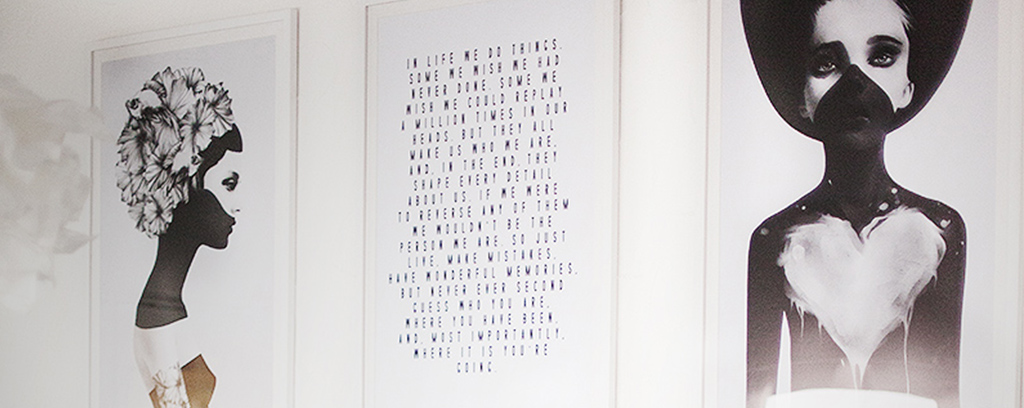 IN LIFE WE DO THINGS.
SOME WE WISH WE HAD
NEVER DONE. SOME WE
WISH WE COULD REPLAY
A MILLION TIMES IN OUR
HEADS. BUT THEY ALL
MAKE US WHO WE ARE,
AND, IN THE END, THEY
SHAPE EVERY DETAIL
ABOUT US. IF WE WERE
TO REVERSE ANY OF THEM
WE WOULDN'T BE THE
PERSON WE ARE. SO JUST
LIVE, MAKE MISTAKES,
HAVE WONDERFUL MEMORIES,
BUT NEVER EVER SECOND
GUESS WHO YOU ARE,
WHERE YOU HAVE BEEN,
AND, MOST IMPORTANTLY,
WHERE IT IS YOU'RE
GOING.